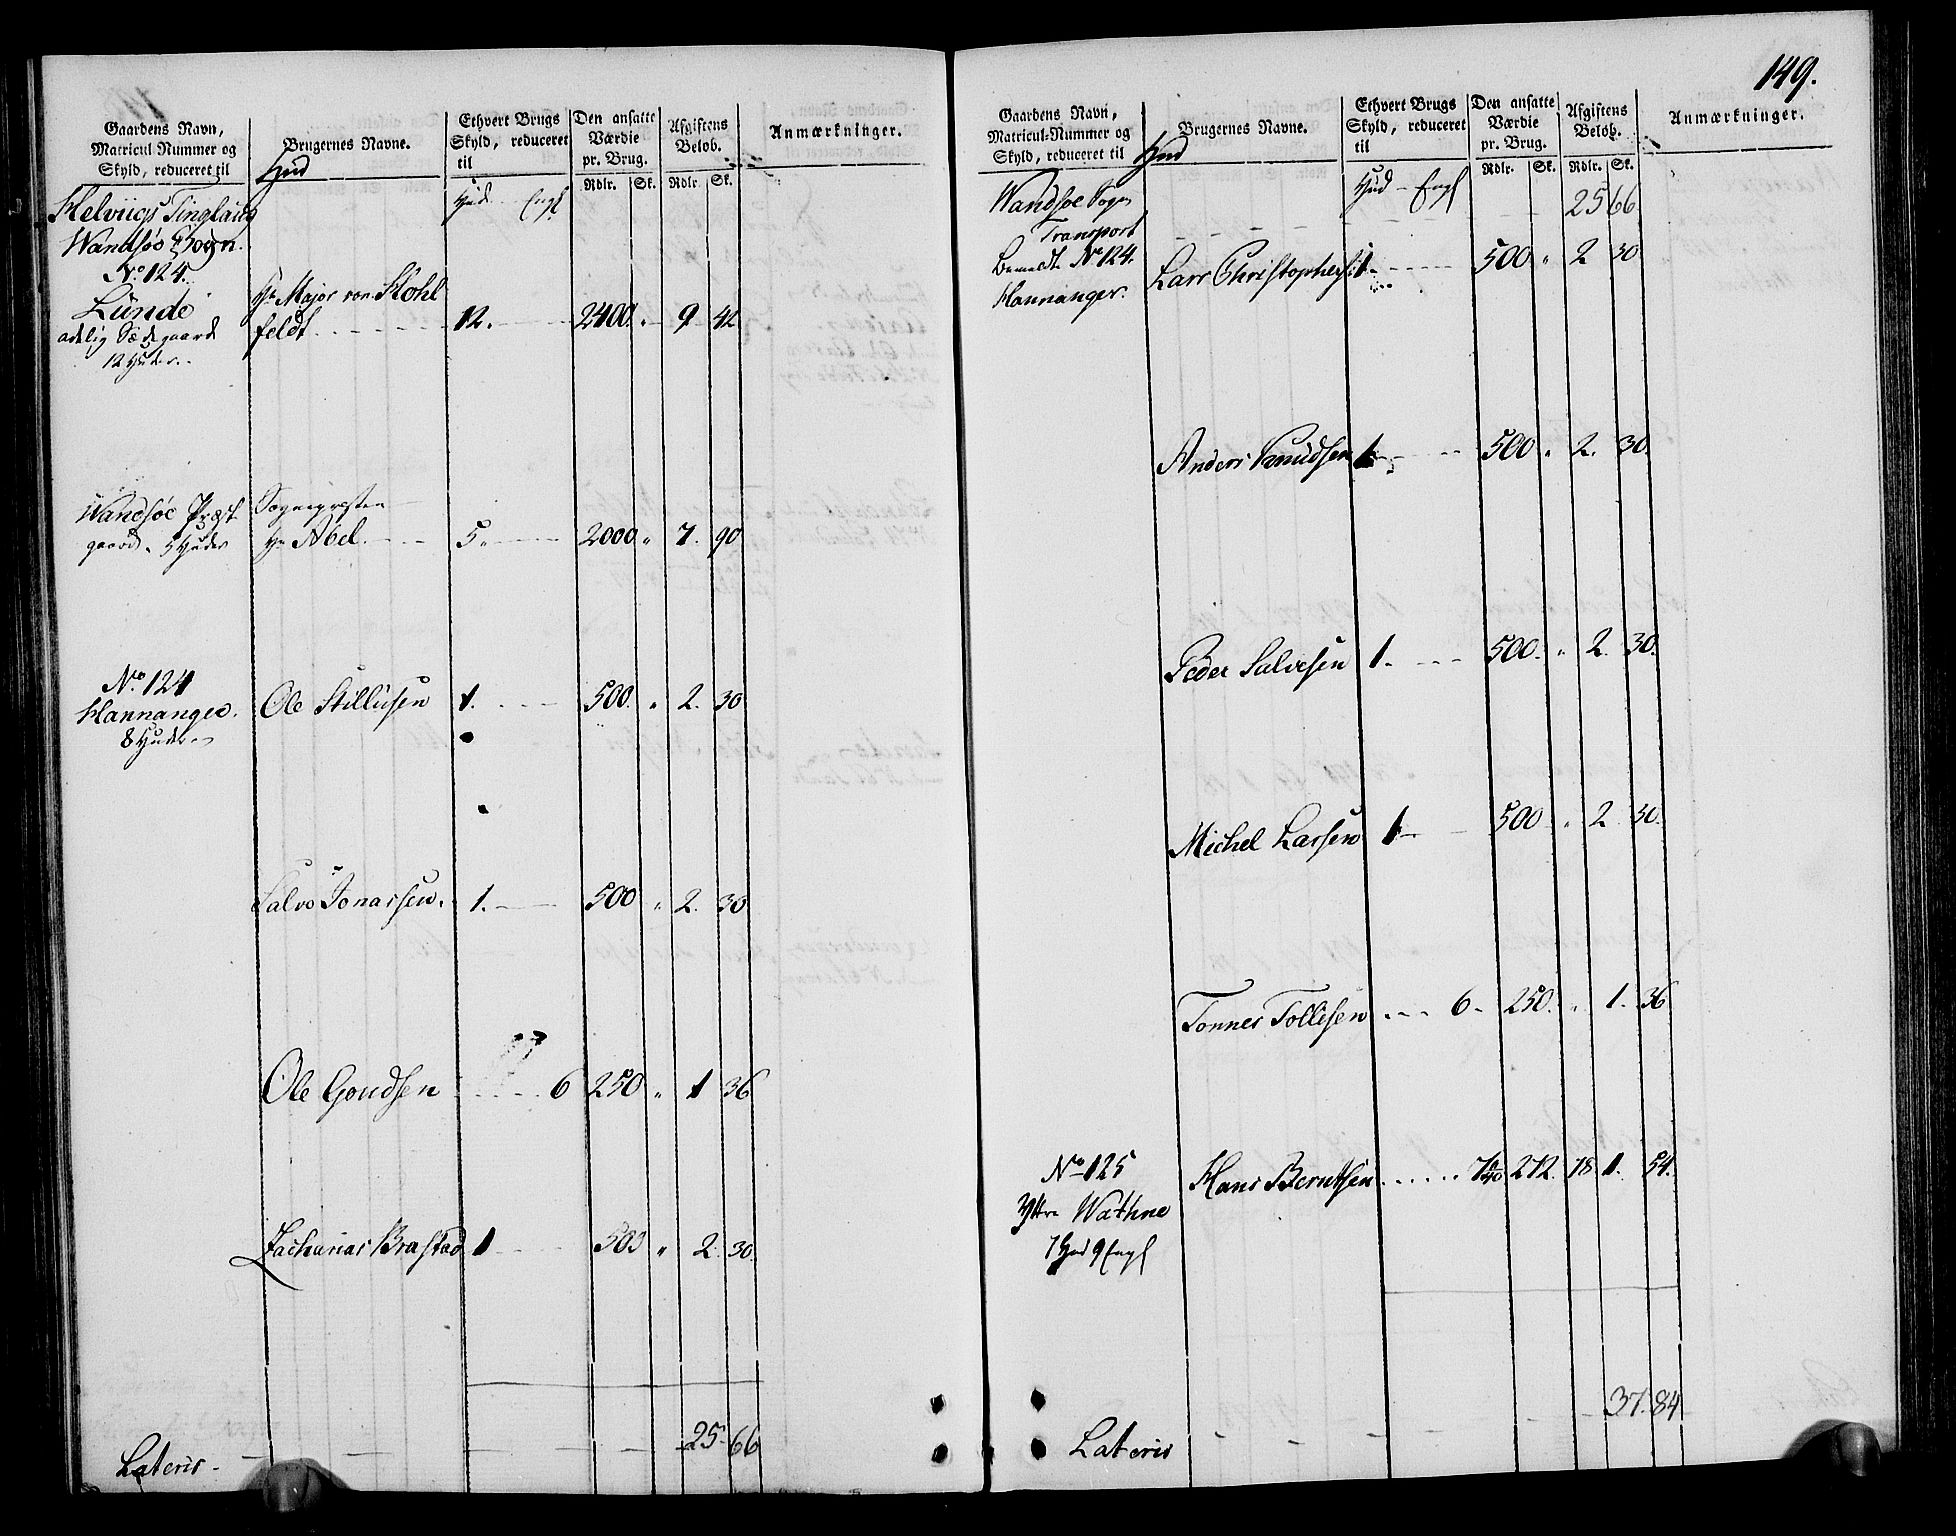 Gaardens Navn,
Matricul Nummer og
Skyld, reduceret til
Brugernes Navne.
Hud
Ethvert Brugs
Skyld, reduceret
til
Den ansatte
Værdie
pr. Brug.
Rdlr. Sk.
Afgiftens
Beløb.
Rdlr. Sk.
Anmærkninger.
Helviigs Tinglaug Hud Engl
Wandsøe Sogn.
No. 124.
Lunde
adelig Sædegaard
12 Huder.
Hr Major von Stohl
feldt 12. 2400. " 9 42
Wandsøe Præst
gaard. 5 Huder
Sognepresten
Hr Abel. 5. 2000 " 7. 90
No. 124
Hannanger.
8 Huder.
Ole Stillufsen 1. 500. " 2. 30
Salve Jonassen. 1. 500 " 2. 30
Ole Goudsen 6 250 " 1 36
Zacharias Brastad 1 503 " 2. 30.
Lateris 25. 66
149.
Gaardens Navn,
Matricul-Nummer og
Skyld, reduceret til
Hud
Brugernes Navne.
Ethvert Brugs
Skyld, reduceret
til
Den ansatte
Værdie
pr. Brug.
Rdlr. Sk.
Afgiftens
Beløb.
Rdlr. Sk.
Anmærkninger.
Wandsøe Sogn Hud Engl
Transport 25 66
bemeldte No 124.
Hannanger.
Lars Christophers: 1. 500 " 2 30
Anders Knudsen 1. 500 " 2. 30.
Peder Salvesen 1. 500. " 2. 30.
Michel Larsen 1 500 " 2 30.
Tønnes Tollisen 6 250. " 1. 36
No. 125
Yttre Wathne
1 Hud 9 Engl
Hans Berntsen 272. 78 1. 54.
37. 84
Lateris